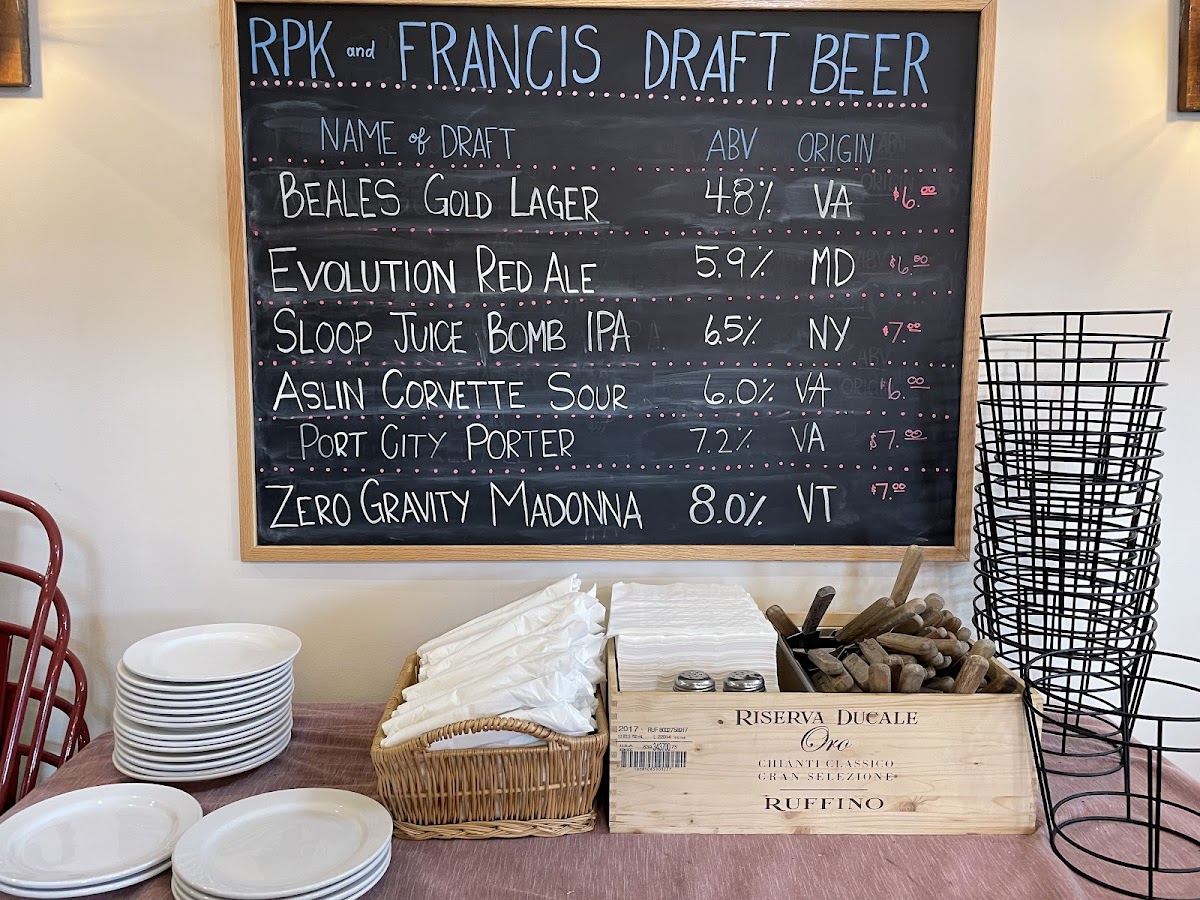 RPK and FRANCIS DRAFT BEER
NAME of DRAFT ABV ORIGIN
BEALES GOLD LAGER 4.8% VA $6.00
EVOLUTION RED ALE 5.9% MD $6.00
SLOOP JUICE BOMB IPA 6.5% NY $7.00
ASLIN CORVETTE SOUR 6.0% VA $6.00
PORT CITY PORTER 7.2% VA $7.00
ZERO GRAVITY MADONNA 8.0% VT $7.00
RISERVA DUCALE
Oro
CHIANTI CLASSICO
GRAN SELEZIONE
RUFFINO
2017